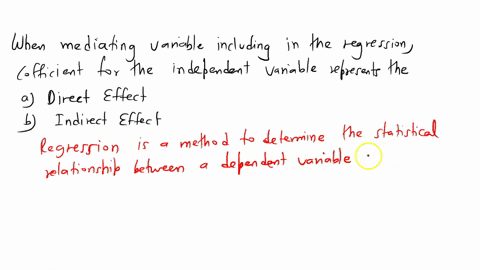 When mediating variable including in the regression,
cofficient for the independent variable represents the
a) Direct Effect
b) Indirect Effect
Regression is a method to determine the statistical
relationship between a dependent variable